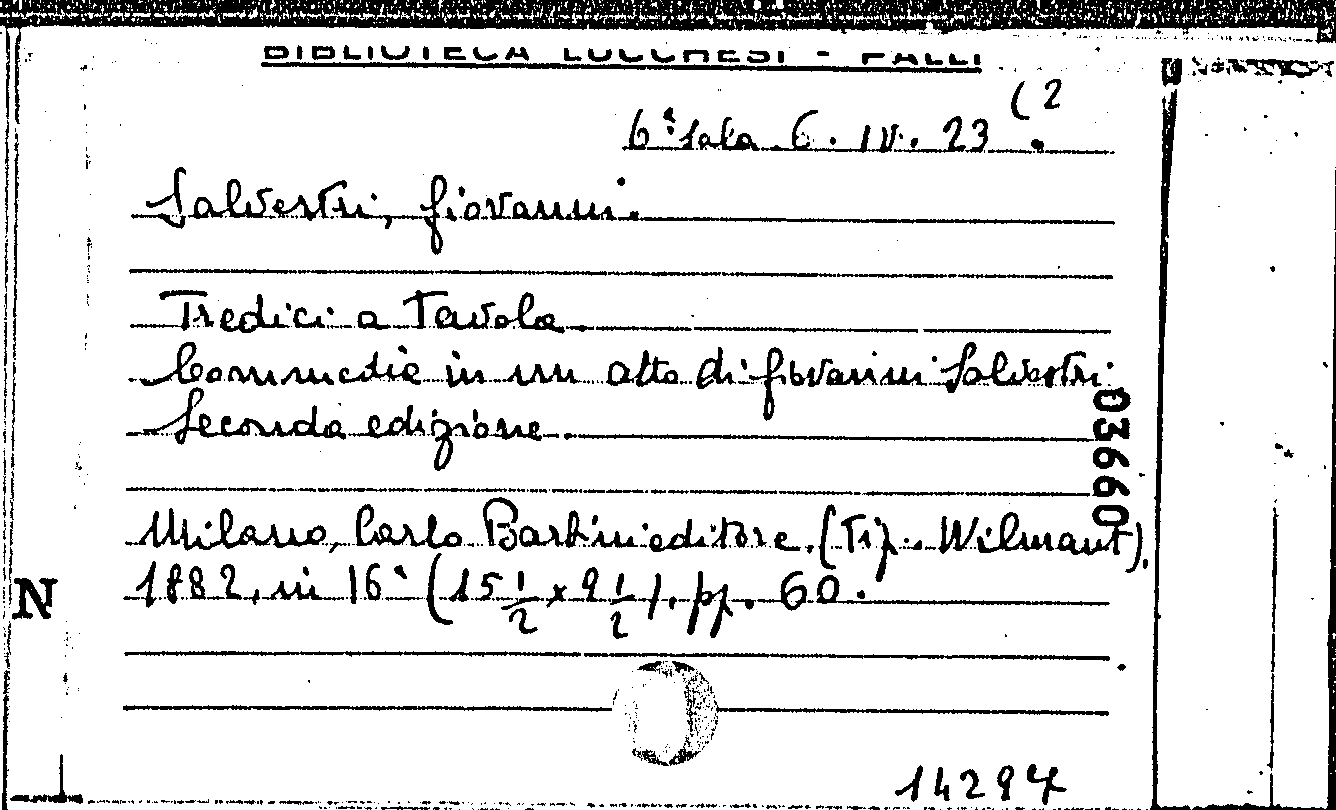 BIBLIOTECA LUCCHESI - PALLI
6ª Sala. 6. IV. 23 (2
Salvestri, Giovanni.
Tredici a Tavola.
Commedia in un atto di Giovanni Salvestri
Seconda edizione.
03660
Milano, Carlo Barbini editore. (Tip. Wilmant).
1882, in 16° (15 1/2 x 9 1/2). pp. 60.
N
14297